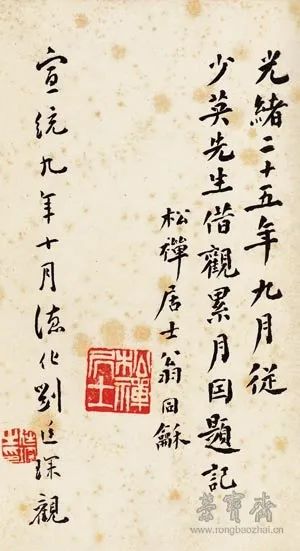 光緒二十五年九月從
少英先生借觀累月因題記
松禪居士翁同龢
松禪居士
宣統九年十月德化劉廷琛觀
榮寶齋
www.rongbaozhai.cn